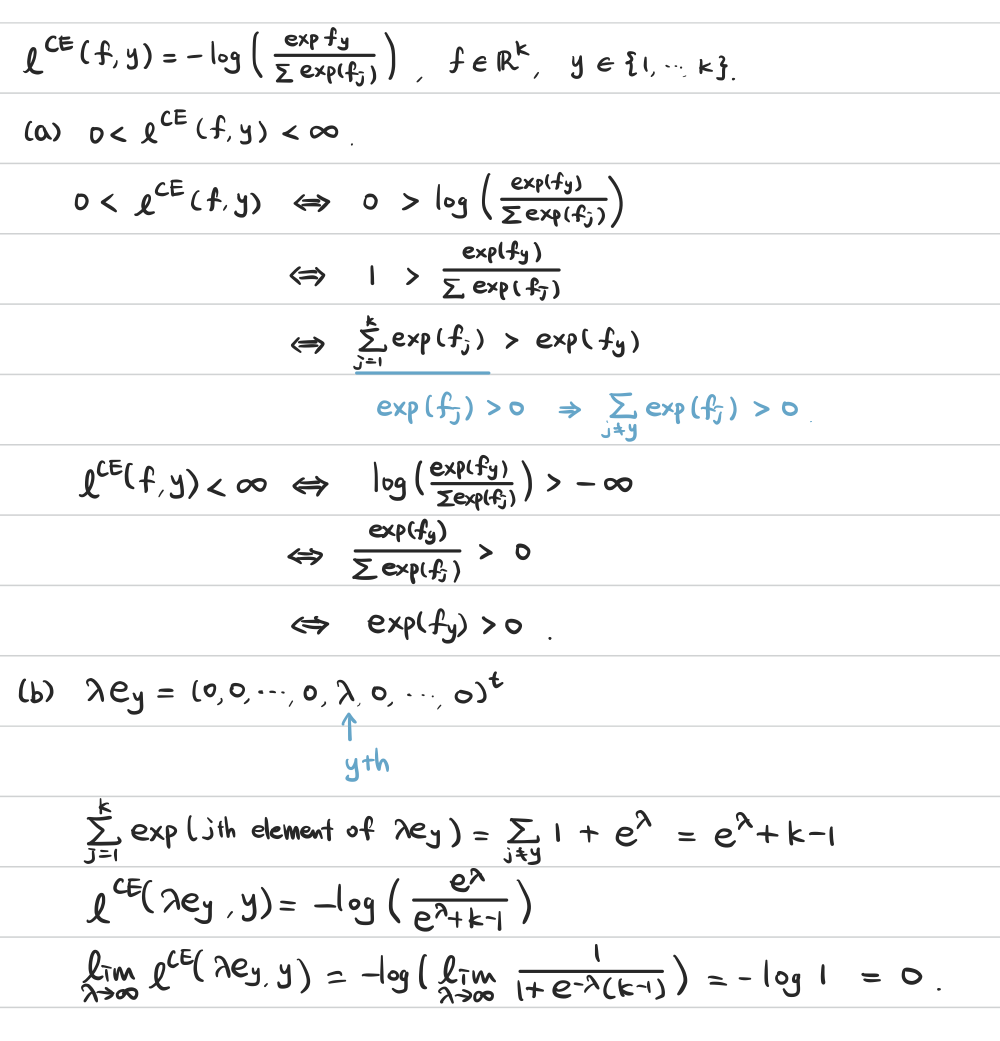 ℓ^CE (f, y) = −log ( exp f_y / Σ exp(f_j) ), f ∈ ℝ^k, y ∈ {1, ⋯ k}.
(a) 0 < ℓ^CE (f, y) < ∞.
0 < ℓ^CE (f, y) ⇔ 0 > log ( exp(f_y) / Σ exp(f_j) )
⇔ 1 > exp(f_y) / Σ exp(f_j)
⇔ Σ_{j=1}^{k} exp(f_j) > exp(f_y)
exp(f_j) > 0 ⇒ Σ_{j≠y} exp(f_j) > 0.
ℓ^CE(f, y) < ∞ ⇔ log ( exp(f_y) / Σ exp(f_j) ) > −∞
⇔ exp(f_y) / Σ exp(f_j) > 0
⇔ exp(f_y) > 0.
(b) λe_y = (0, 0, ⋯, 0, λ, 0, ⋯, 0)^t
↑
yth
Σ_{j=1}^{k} exp ( jth element of λe_y ) = Σ_{j≠y} 1 + e^λ = e^λ + k−1
ℓ^CE(λe_y, y) = −log ( e^λ / e^λ+k−1 )
lim_{λ→∞} ℓ^CE( λe_y, y ) = −log ( lim_{λ→∞} 1 / 1+e^−λ(k−1) ) = −log 1 = 0.